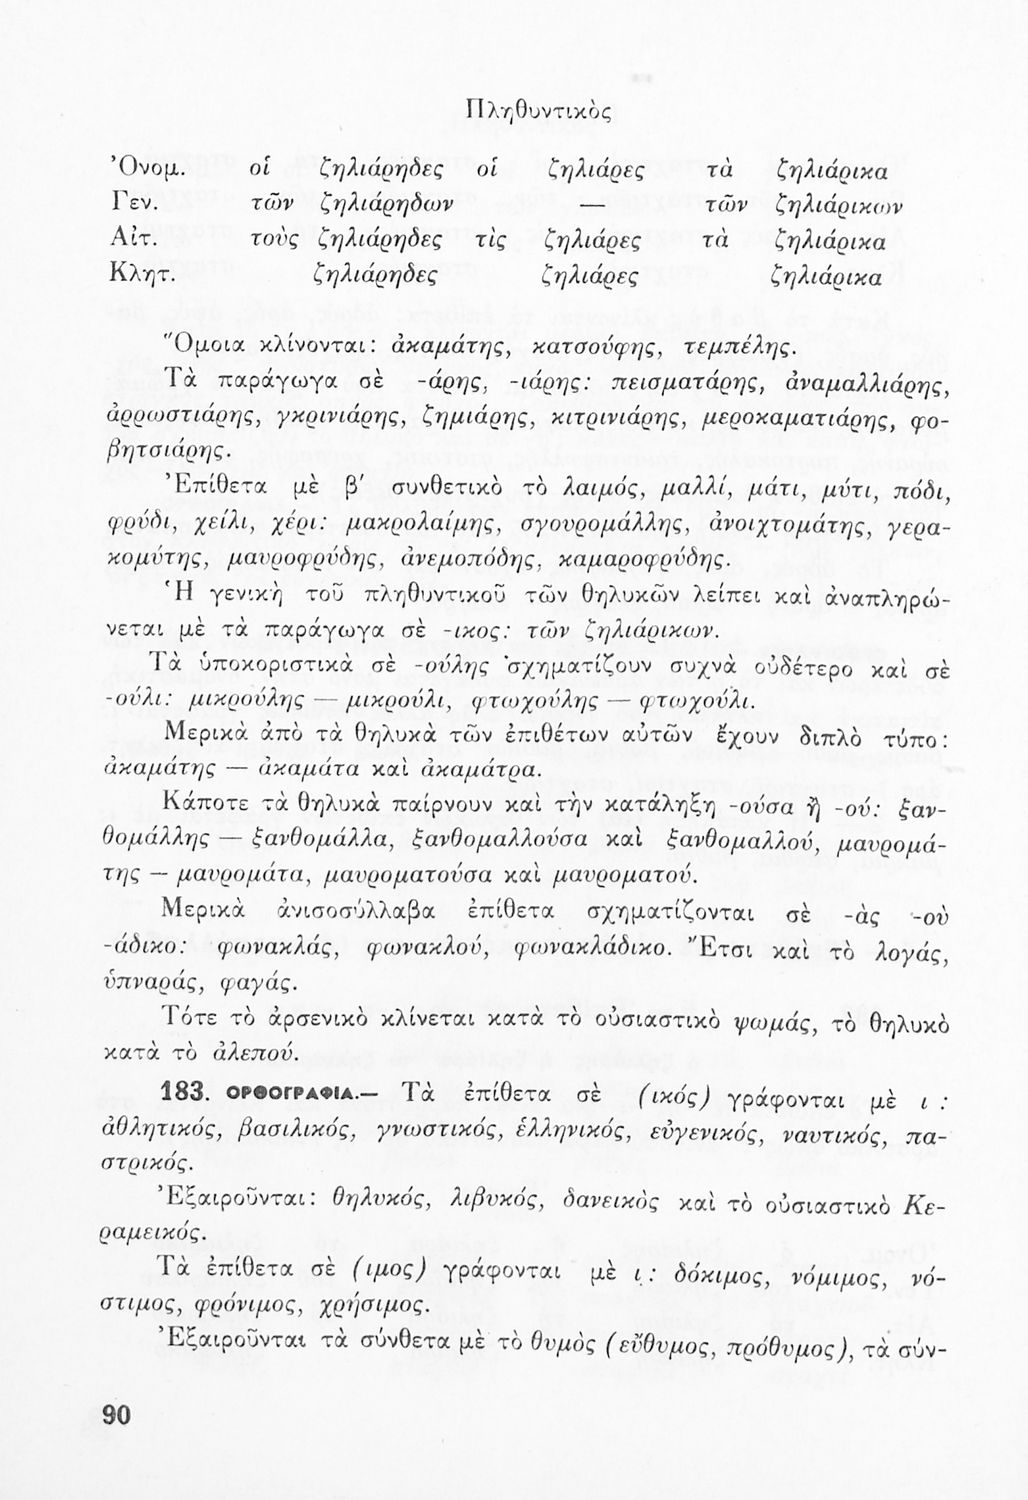 Πληθυντικὸς
Ὀνομ. οἱ ζηλιάρηδες οἱ ζηλιάρες τὰ ζηλιάρικα
Γεν. τῶν ζηλιάρηδων — τῶν ζηλιάρικων
Αἰτ. τοὺς ζηλιάρηδες τὶς ζηλιάρες τὰ ζηλιάρικα
Κλητ. ζηλιάρηδες ζηλιάρες ζηλιάρικα
Ὅμοια κλίνονται: ἀκαμάτης, κατσούφης, τεμπέλης.
Τὰ παράγωγα σὲ -άρης, -ιάρης: πεισματάρης, ἀναμαλλιάρης,
ἀρρωστιάρης, γκρινιάρης, ζημιάρης, κιτρινιάρης, μεροκαματιάρης, φο-
βητσιάρης.
Ἐπίθετα μὲ β′ συνθετικὸ τὸ λαιμός, μαλλί, μάτι, μύτι, πόδι,
φρύδι, χείλι, χέρι: μακρολαίμης, σγουρομάλλης, ἀνοιχτομάτης, γερα-
κομύτης, μαυροφρύδης, ἀνεμοπόδης, καμαροφρύδης.
Ἡ γενικὴ τοῦ πληθυντικοῦ τῶν θηλυκῶν λείπει καὶ ἀναπληρώ-
νεται μὲ τὰ παράγωγα σὲ -ικος: τῶν ζηλιάρικων.
Τὰ ὑποκοριστικὰ σὲ -ούλης σχηματίζουν συχνὰ οὐδέτερο καὶ σὲ
-ούλι: μικρούλης — μικρούλι, φτωχούλης — φτωχούλι.
Μερικὰ ἀπὸ τὰ θηλυκὰ τῶν ἐπιθέτων αὐτῶν ἔχουν διπλὸ τύπο:
ἀκαμάτης — ἀκαμάτα καὶ ἀκαμάτρα.
Κάποτε τὰ θηλυκὰ παίρνουν καὶ τὴν κατάληξη -ούσα ἢ -ού: ξαν-
θομάλλης — ξανθομάλλα, ξανθομαλλούσα καὶ ξανθομαλλού, μαυρομά-
της — μαυρομάτα, μαυροματούσα καὶ μαυροματού.
Μερικὰ ἀνισοσύλλαβα ἐπίθετα σχηματίζονται σὲ -ὰς -οὺ
-άδικο: φωνακλάς, φωνακλού, φωνακλάδικο. Ἔτσι καὶ τὸ λογάς,
ὑπναράς, φαγάς.
Τότε τὸ ἀρσενικὸ κλίνεται κατὰ τὸ οὐσιαστικὸ ψωμάς, τὸ θηλυκὸ
κατὰ τὸ ἀλεπού.
183. ΟΡΘΟΓΡΑΦΙΑ.— Τὰ ἐπίθετα σὲ (ικός) γράφονται μὲ ι :
ἀθλητικός, βασιλικός, γνωστικός, ἑλληνικός, εὐγενικός, ναυτικός, πα-
στρικός.
Ἐξαιροῦνται: θηλυκός, λιβυκός, δανεικὸς καὶ τὸ οὐσιαστικὸ Κε-
ραμεικός.
Τὰ ἐπίθετα σὲ (ιμος) γράφονται μὲ ι : δόκιμος, νόμιμος, νό-
στιμος, φρόνιμος, χρήσιμος.
Ἐξαιροῦνται τὰ σύνθετα μὲ τὸ θυμὸς (εὔθυμος, πρόθυμος), τὰ σύν-
90